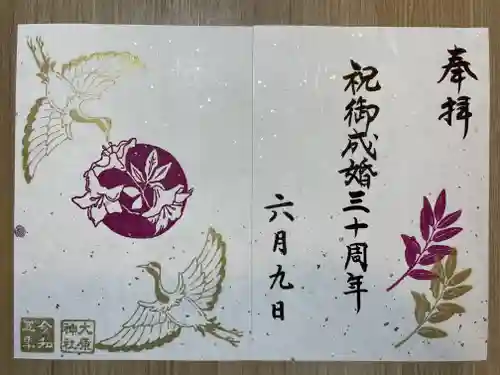 奉拝
祝御成婚三十周年
六月九日
大原
神社
令和